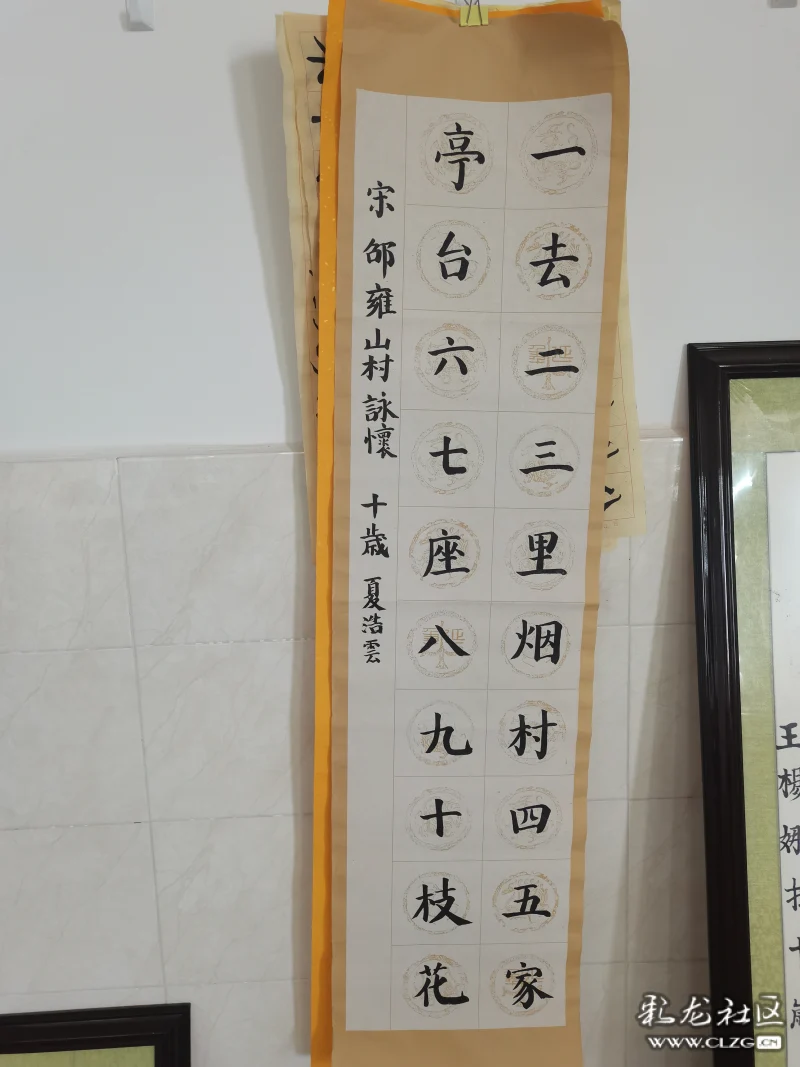 一去二三里烟村四五家
亭台六七座八九十枝花
宋 邵雍山村詠懷 十歲 夏浩雲
彩龙社区
WWW.CLZG.CN